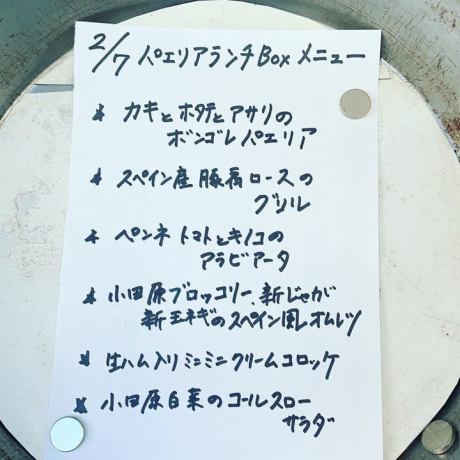 2/7 パエリアランチBox メニュー
★ カキとホタテとアサリの
ボンゴレパエリア
★ スペイン産豚肩ロースの
グリル
★ ペンネ トマトとキノコの
アラビアータ
★ 小田原ブロッコリー、新じゃが
新玉ネギのスペイン風オムレツ
★ 生ハム入りミニミニクリームコロッケ
★ 小田原白菜のコールスロー
サラダ